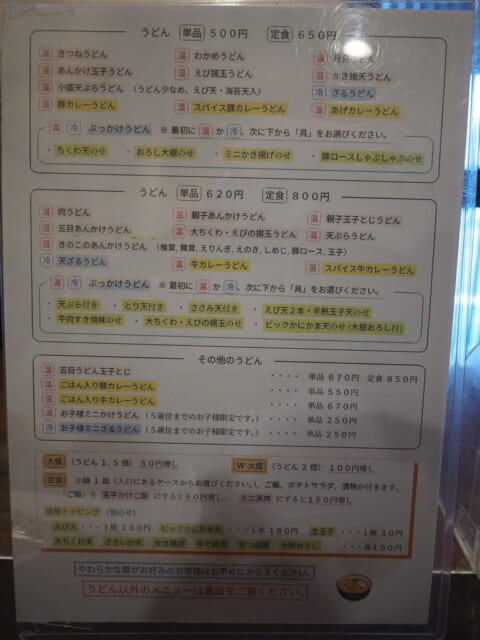 うどん 単品 500円 定食 650円
温 きつねうどん 温 わかめうどん 温 月見うどん
温 あんかけ玉子うどん 温 えび揚玉うどん 温 かき揚天うどん
温 小盛天ぷらうどん (うどん少なめ、えび天・海苔天入) 冷 ざるうどん
温 豚カレーうどん 温 スパイス豚カレーうどん 温 あげカレーうどん
温 冷 ぶっかけうどん ※ 最初に 温 か 冷、次に下から「具」をお選びください。
・ちくわ天のせ ・おろし大根のせ ・ミニかき揚げのせ ・豚ロースしゃぶしゃぶのせ
うどん 単品 620円 定食 800円
温 肉うどん 温 親子あんかけうどん 温 親子玉子とじうどん
温 五目あんかけうどん 温 大ちくわ・えびの揚玉うどん 温 天ぷらうどん
温 きのこのあんかけうどん (椎茸, 舞茸, えりんぎ, えのき, しめじ, 豚ロース, 玉子)
冷 天ざるうどん 温 牛カレーうどん 温 スパイス牛カレーうどん
温 冷 ぶっかけうどん ※ 最初に 温 か 冷、次に下から「具」をお選びください。
・天ぷら付き ・とり天付き ・ささみ天付き ・えび天2本・半熟玉子天のせ
・牛肉すき焼味のせ ・大ちくわ・えびの揚玉のせ ・ビックかにかま天のせ(大根おろし付)
その他のうどん
温 五目うどん玉子とじ ・・・・ 単品 670円 定食 850円
温 ごはん入り豚カレーうどん ・・・・ 単品 550円
温 ごはん入り牛カレーうどん ・・・・ 単品 670円
温 お子様ミニかけうどん (5歳位までのお子様限定です。) ・・・・ 単品 250円
冷 お子様ミニざるうどん (5歳位までのお子様限定です。) ・・・・ 単品 250円
大盛 (うどん1.5倍) 50円増し W大盛 (うどん2倍) 100円増し
定食 小鉢1皿(入口にあるケースからお選びください。)、ご飯、ポテトサラダ、漬物が付きます。
「ご飯」を 玉子かけご飯 にすると50円増し、 ミニ天丼 にすると160円増し
追加トッピング (別のせ)
えび天 ・・・1尾 150円 ビックかにかま天 ・・・1本 180円 生玉子 ・・・1個 30円
大ちくわ天 ささいか天 かき揚げ ゆで卵天 きつね揚 大根おろし ・・・各100円
やわらかな麺がお好みのお客様はお早めにお伝えください。
うどん以外のメニューは裏面をご覧ください。